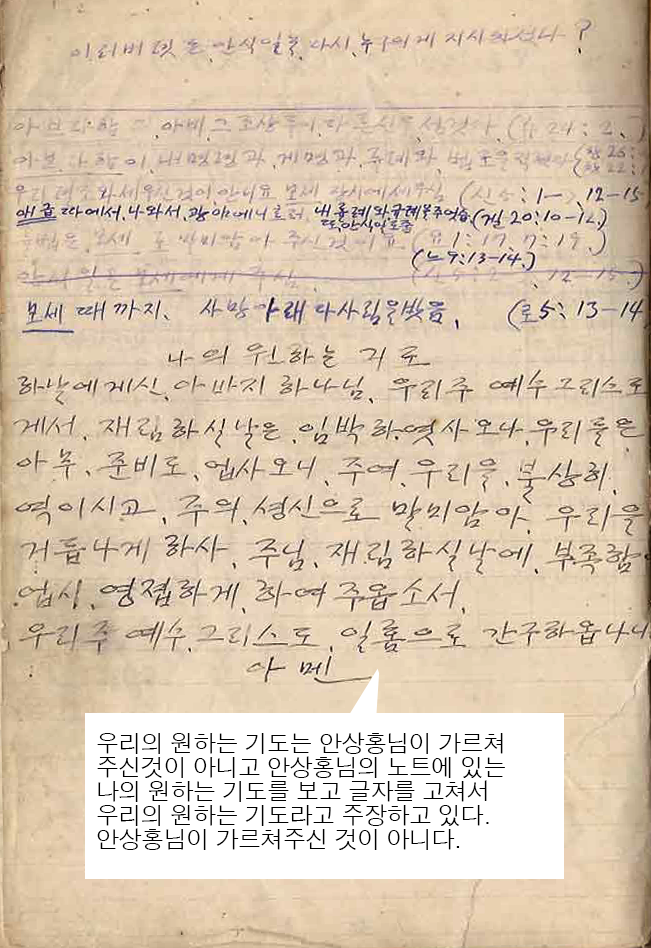 이리버덧은 안식일을 다시 누구에게 지시하셨나?
아브라함의 아비 그 조상들이 다른신을 섬겻다. (수 24:2.)
아브라함이 내 명령과 계명과 률례와 법도를 직혓다
우리 렬조와 세우신것이 안니요 모세 당시에 세우심 (신 5:1-> 12-15
애굽 따에서 나와서 광야에 니르러, 내 률례와 규례를 주엇슴 (겔 20:10-12.)
또, 안식일도 줌
률법은 모세로 말미암아 주신것이요. (요 1:17, 7:19.)
(느 9:13-14.)
안식일은 모세에게 주심. (신 5: 12-15.)
모세 때까지. 사망아래 다사림을 밧음. (로5:13-14
나의 원하는 기도
하날에 게신, 아바지 하나님, 우리주 예수그리스도
게서, 재림하실날은, 임박하엿사오나, 우리들은
아무, 준비도, 업사오니, 주여, 우리을, 불상히,
역이시고, 주의, 성신으로 말미암아, 우리을
거듭나게 하사, 주님, 재림하실날에, 부족함
업시, 영접하게, 하여 주옵소서,
우리주 예수, 그리스도, 일홈으로 간구하옵나니
아멘
우리의 원하는 기도는 안상홍님이 가르쳐
주신것이 아니고 안상홍님의 노트에 있는
나의 원하는 기도를 보고 글자를 고쳐서
우리의 원하는 기도라고 주장하고 있다.
안상홍님이 가르쳐주신 것이 아니다.